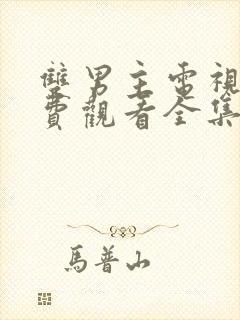 雙男主電視
費觀看全集
馬普山